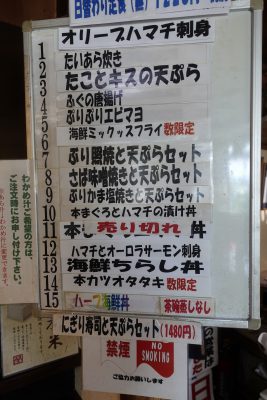 日替わり定食
1 オリーブハマチ刺身
2 たいあら炊き
3 たことキスの天ぷら
4 ふぐの唐揚げ
5 ぷりぷりエビマヨ
6 海鮮ミックッスフライ 数限定
7 ぶり照焼と天ぷらセット
8 さば味噌焼きと天ぷらセット
9 ぶりかま塩焼きと天ぷらセット
10 本まぐろとハマチの漬け丼
11 本 売り切れ 丼
12 ハマチとオーロラサーモン刺身
13 海鮮ちらし丼
14 本カツオタタキ 数限定
15 ハーフ海鮮丼 茶碗蒸しなし
にぎり寿司と天ぷらセット(1480円)
わかめ汁ご希望の方は、
ご注文時にお申し付け下さい。
禁煙 NO SMOKING
ご協力お願いします